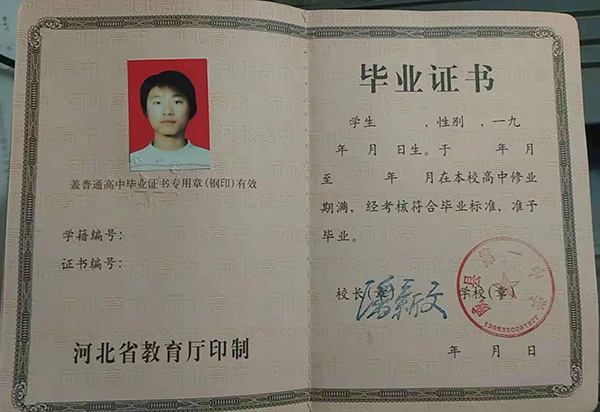 盖普通高中毕业证书专用章(钢印)有效
学籍编号:
证书编号:
河北省教育厅印制
毕业证书
学生 , 性别 , 一九
年 月 日生。于 年 月
至 年 月在本校高中修业
期满, 经考核符合毕业标准, 准予
毕业。
校长(章) 学校(章)
年 月 日